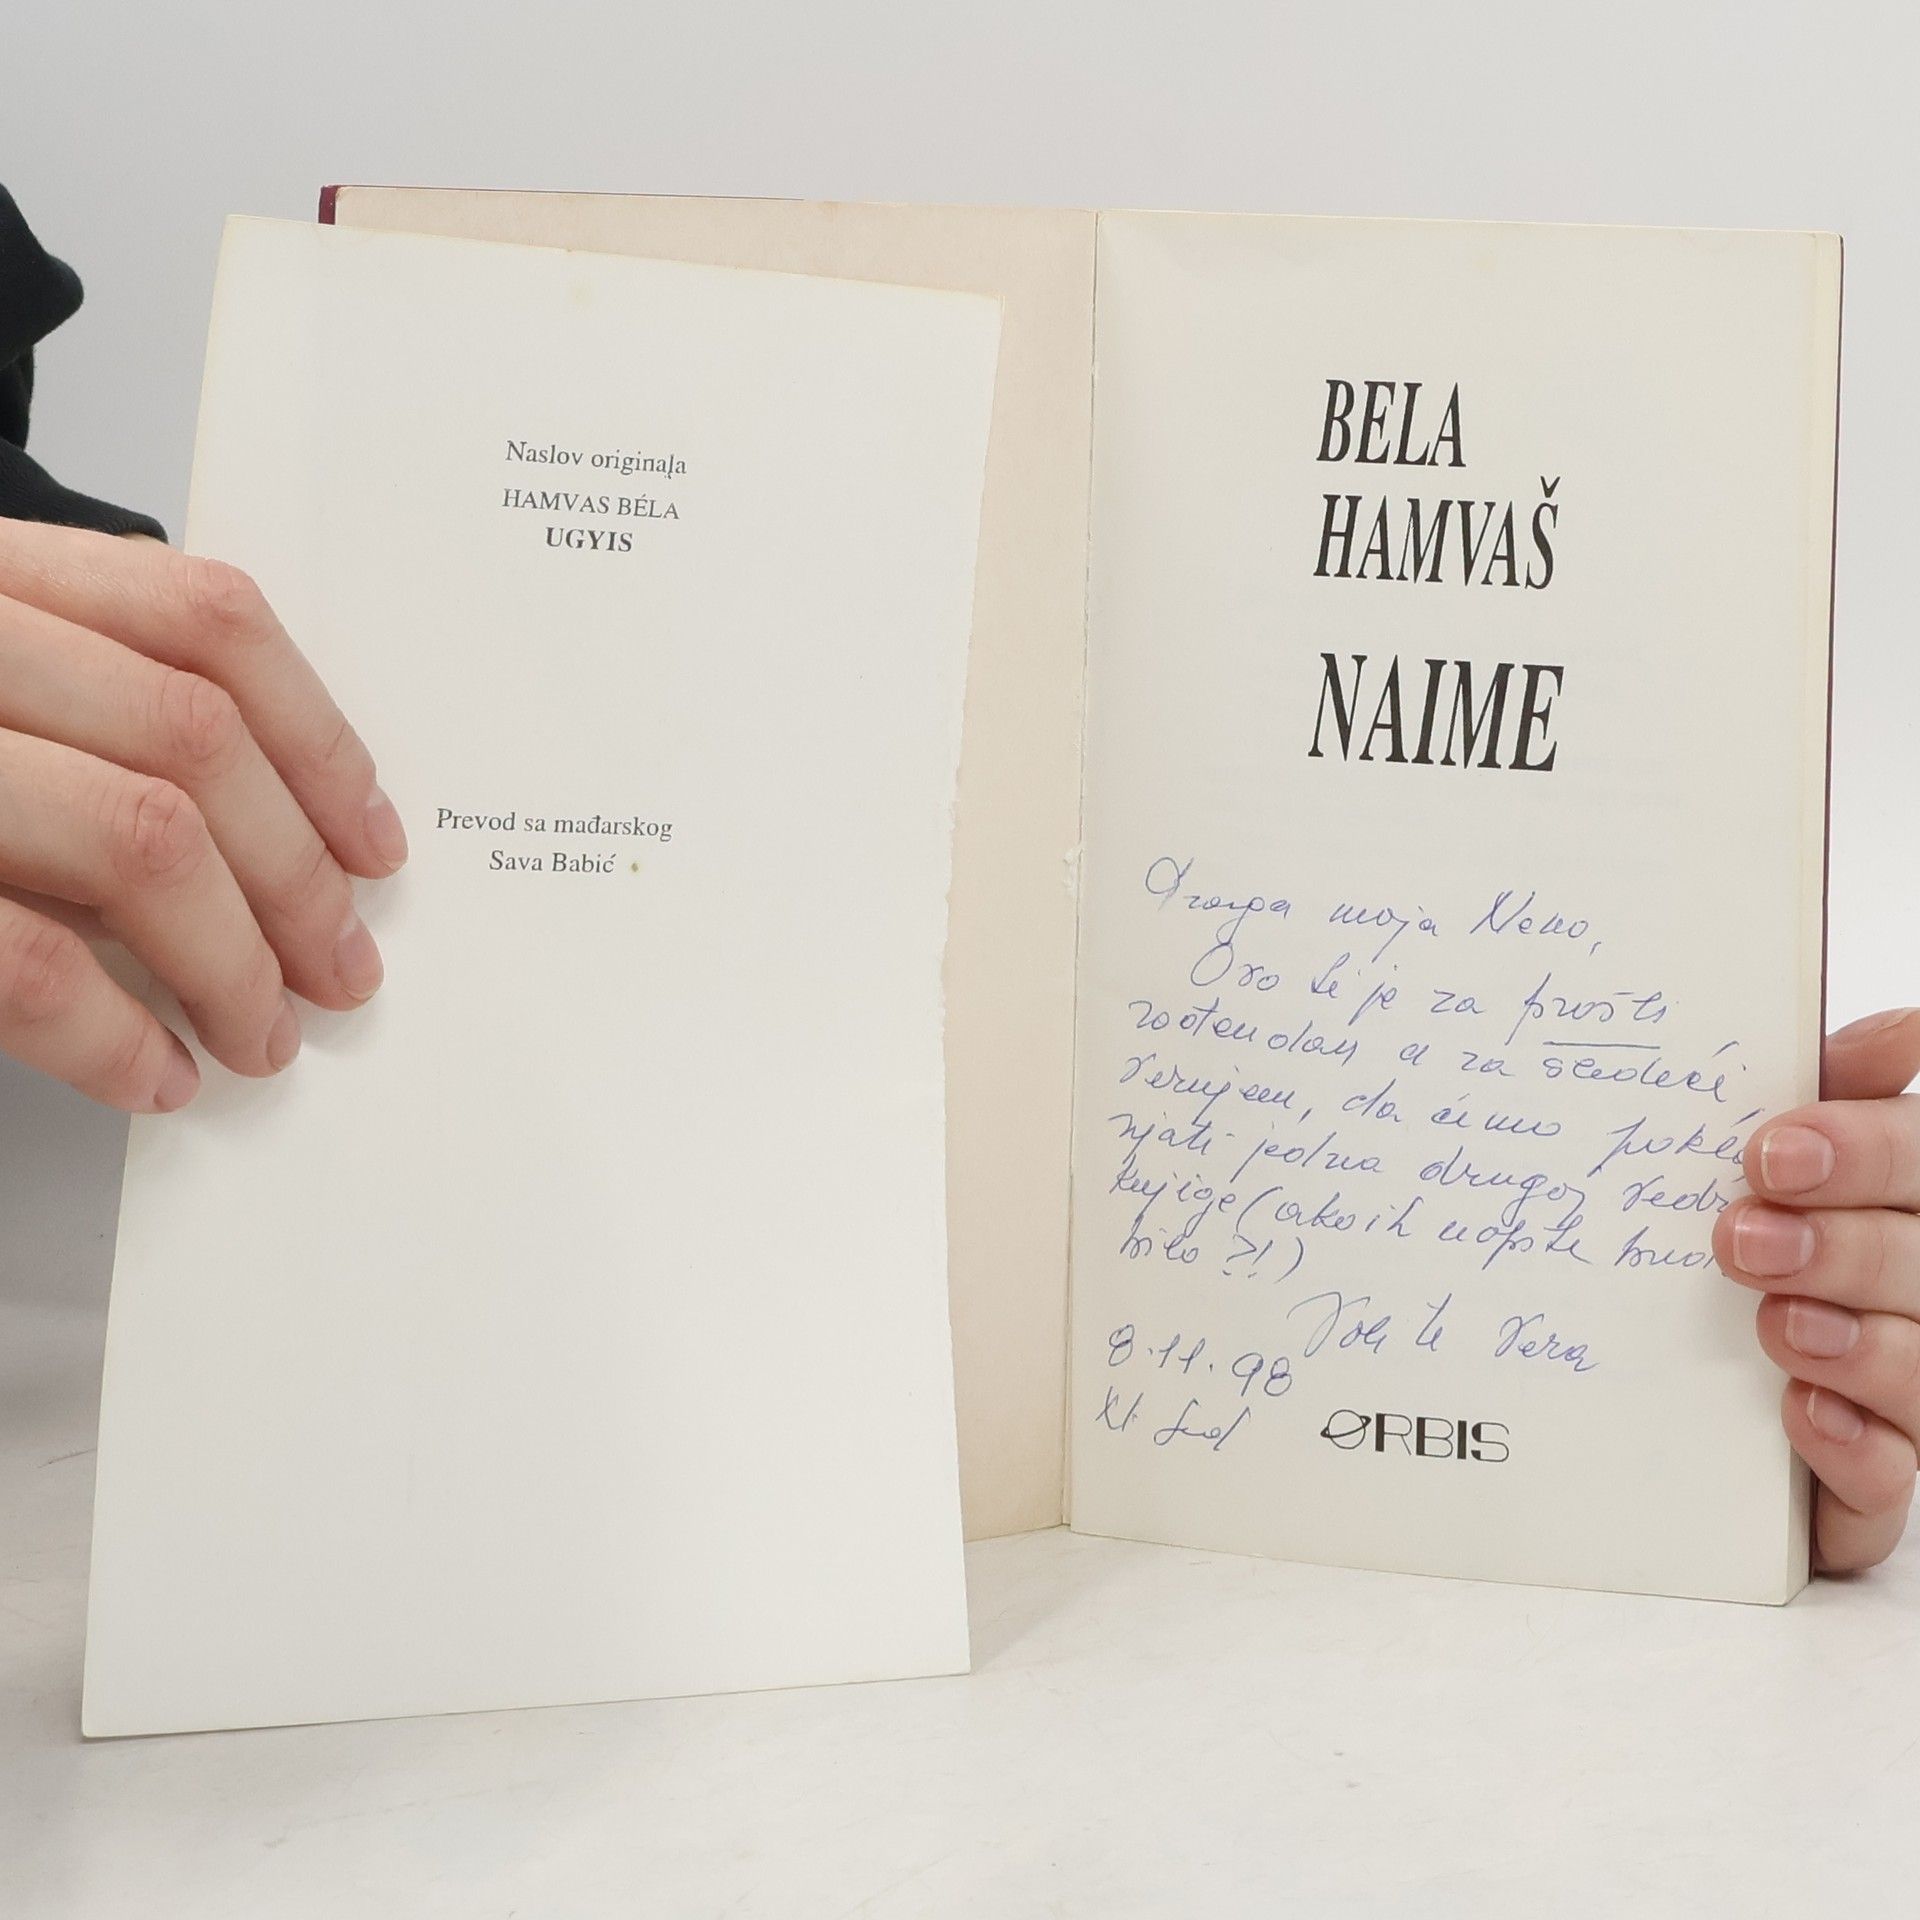 Naslov originala
HAMVAS BÉLA
UGYIS
Prevod sa mađarskog
Sava Babić
BELA
HAMVAŠ
NAIME
Draga moja Neno,
Ovo ti je za prošli
rođendan a za sledeći,
verujem, da ćemo pokla
njati jedna drugoj vedr
knjige (ako ih uopšte bud
bilo ?!)
Voli te Vera
8.11.98
N. Sad
ORBIS